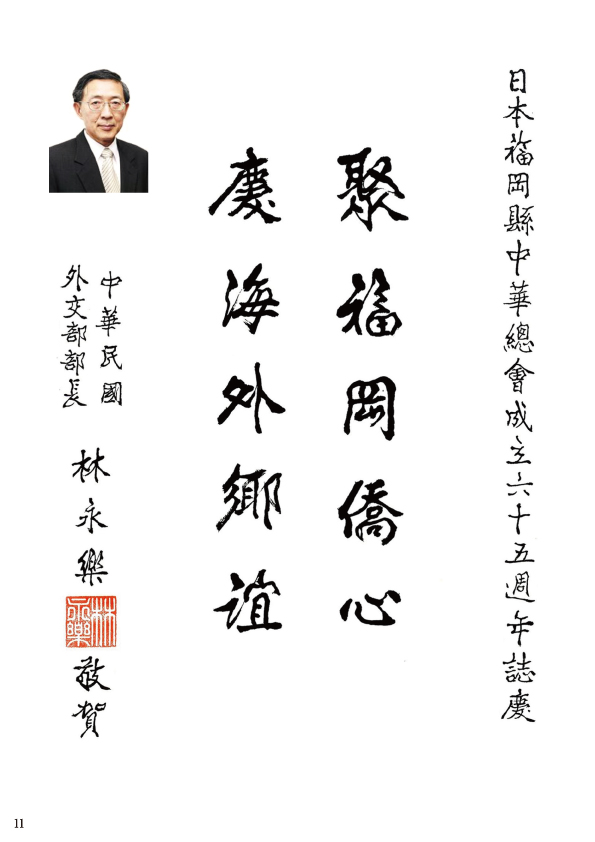 日本福岡縣中華總會成立六十五週年誌慶
聚福岡僑心
慶海外鄉誼
中華民國
外交部部長
林永樂
林永樂
敬賀
11